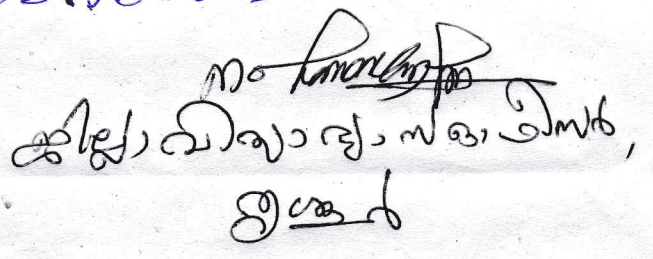 ജില്ലാ വിദ്യാഭ്യാസ ഓഫീസർ,
തൃശ്ശൂർ